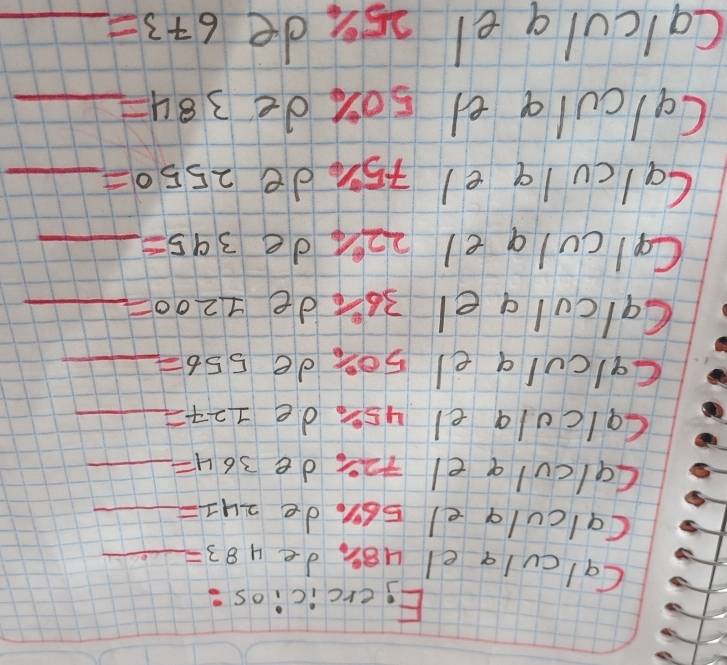 Ejercicios:
Calcula el 48% de 483=
Calcula el 56% de 241=
Calcula el 72% de 364=
Calcula el 45% de 127=
Calcula el 50% de 556=
Calcula el 36% de 1200=
Calcula el 22% de 395=
Calcula el 75% de 2550=
Calcula el 50% de 384=
Calcula el 25% de 673=